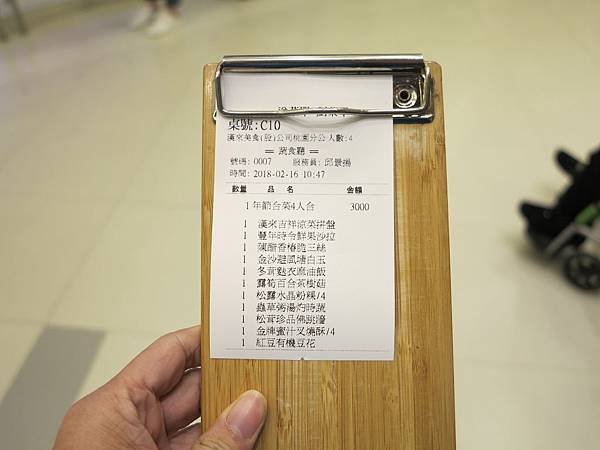 桌號:C10
漢來美食(股)公司桃園分公 人數:4
═ 蔬食廳 ═
號碼: 0007 服務員: 邱景揚
時間: 2018-02-16 10:47
數量 品 名 金額
1 年節合菜4人合 3000
1 漢來吉祥涼菜拼盤
1 豐年時令鮮果沙拉
1 陳醋香椿脆三絲
1 金沙避風塘白玉
1 冬茸麩衣麻油飯
1 露筍百合茶樹菇
1 松露水晶粉粿/4
1 蟲草粥湯灼時蔬
1 松茸珍品佛跳牆
1 金牌蜜汁叉燒酥/4
1 紅豆有機豆花